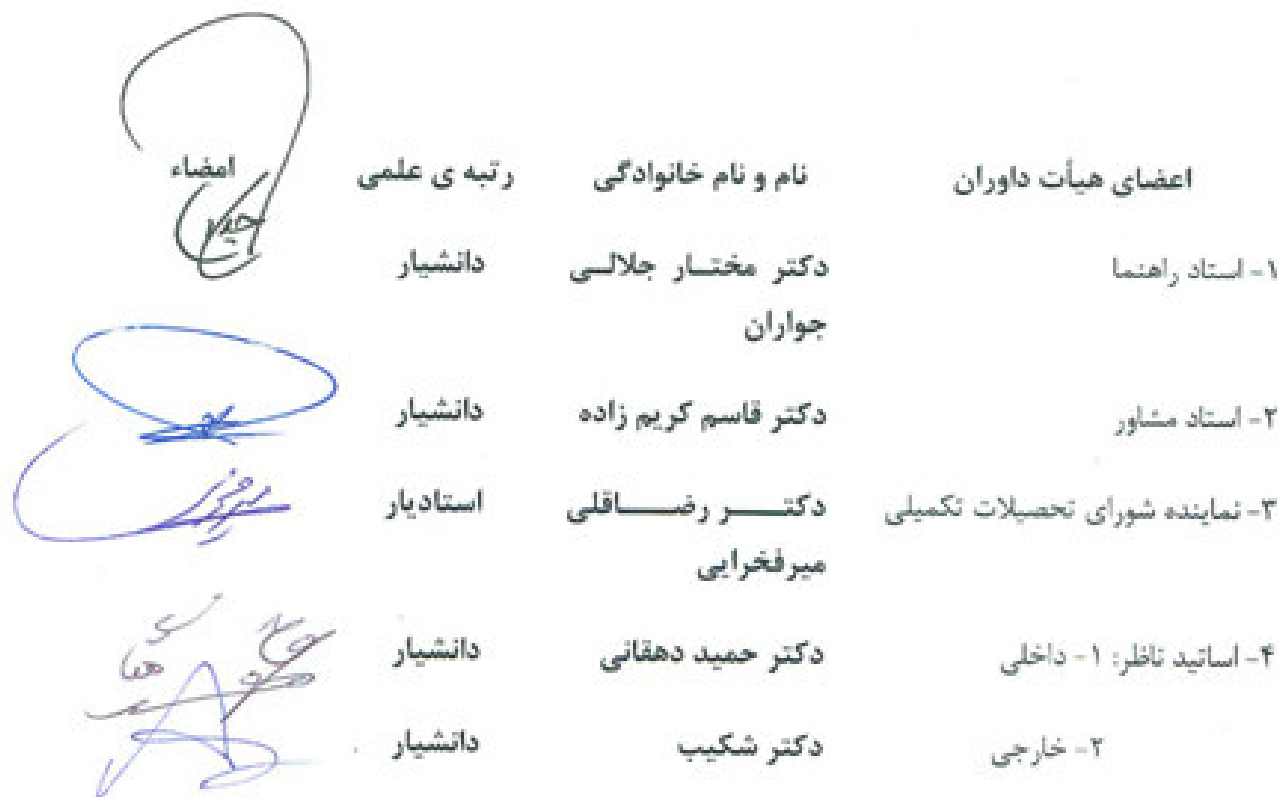 اعضای هیأت داوران نام و نام خانوادگی رتبه ی علمی امضاء
۱- استاد راهنما دکتر مختار جلالی دانشیار
جواران
۲- استاد مشاور دکتر قاسم کریم زاده دانشیار
۳- نماینده شورای تحصیلات تکمیلی دکتر رضاقلی استادیار
میرفخرایی
۴- اساتید ناظر: ۱- داخلی دکتر حمید دهقانی دانشیار
۲- خارجی دکتر شکیب دانشیار